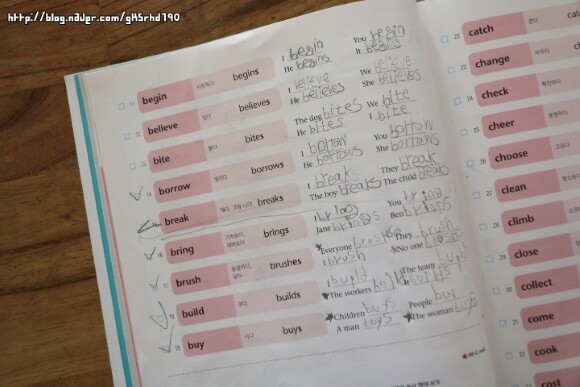 http://blog.naver.com/gkSrhd790
11 begin 시작하다 begins I begin You begin
He begins It begins
12 believe 믿다 believes I believe We believe
He believes She believes
13 bite 물다 bites The dog bites We bite
He bites I bite
14 borrow 빌리다 borrows I borrow You borrow
He borrows She borrows
break breaks I break They break
The boy breaks The child
16 bring 가져오다, 데려오다 brings I bring You bring
Jane brings Ben brings
17 brush brushes Everyone They brush
I brush No one
18 build 짓다 builds I build The team
The workers build It
19 buy 사다 buys Children buys People buy
A man buys The woman buys
22 catch 잡다
23 change 바꾸다
24 check 확인하다
25 cheer 응원하다
26 choose 고르다
27 clean 청소하다
28 climb 오르다
29 close
30 collect
31 come
32 cook
cost